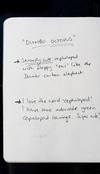 "DUMBO OCTOPUS"
→ Seriously cute cephalopod
with floppy "ears" like the
Dumbo cartoon elephant
→ I love the word "cephalopod".
I have some adorable green
cephalopod earrings. Super cute!